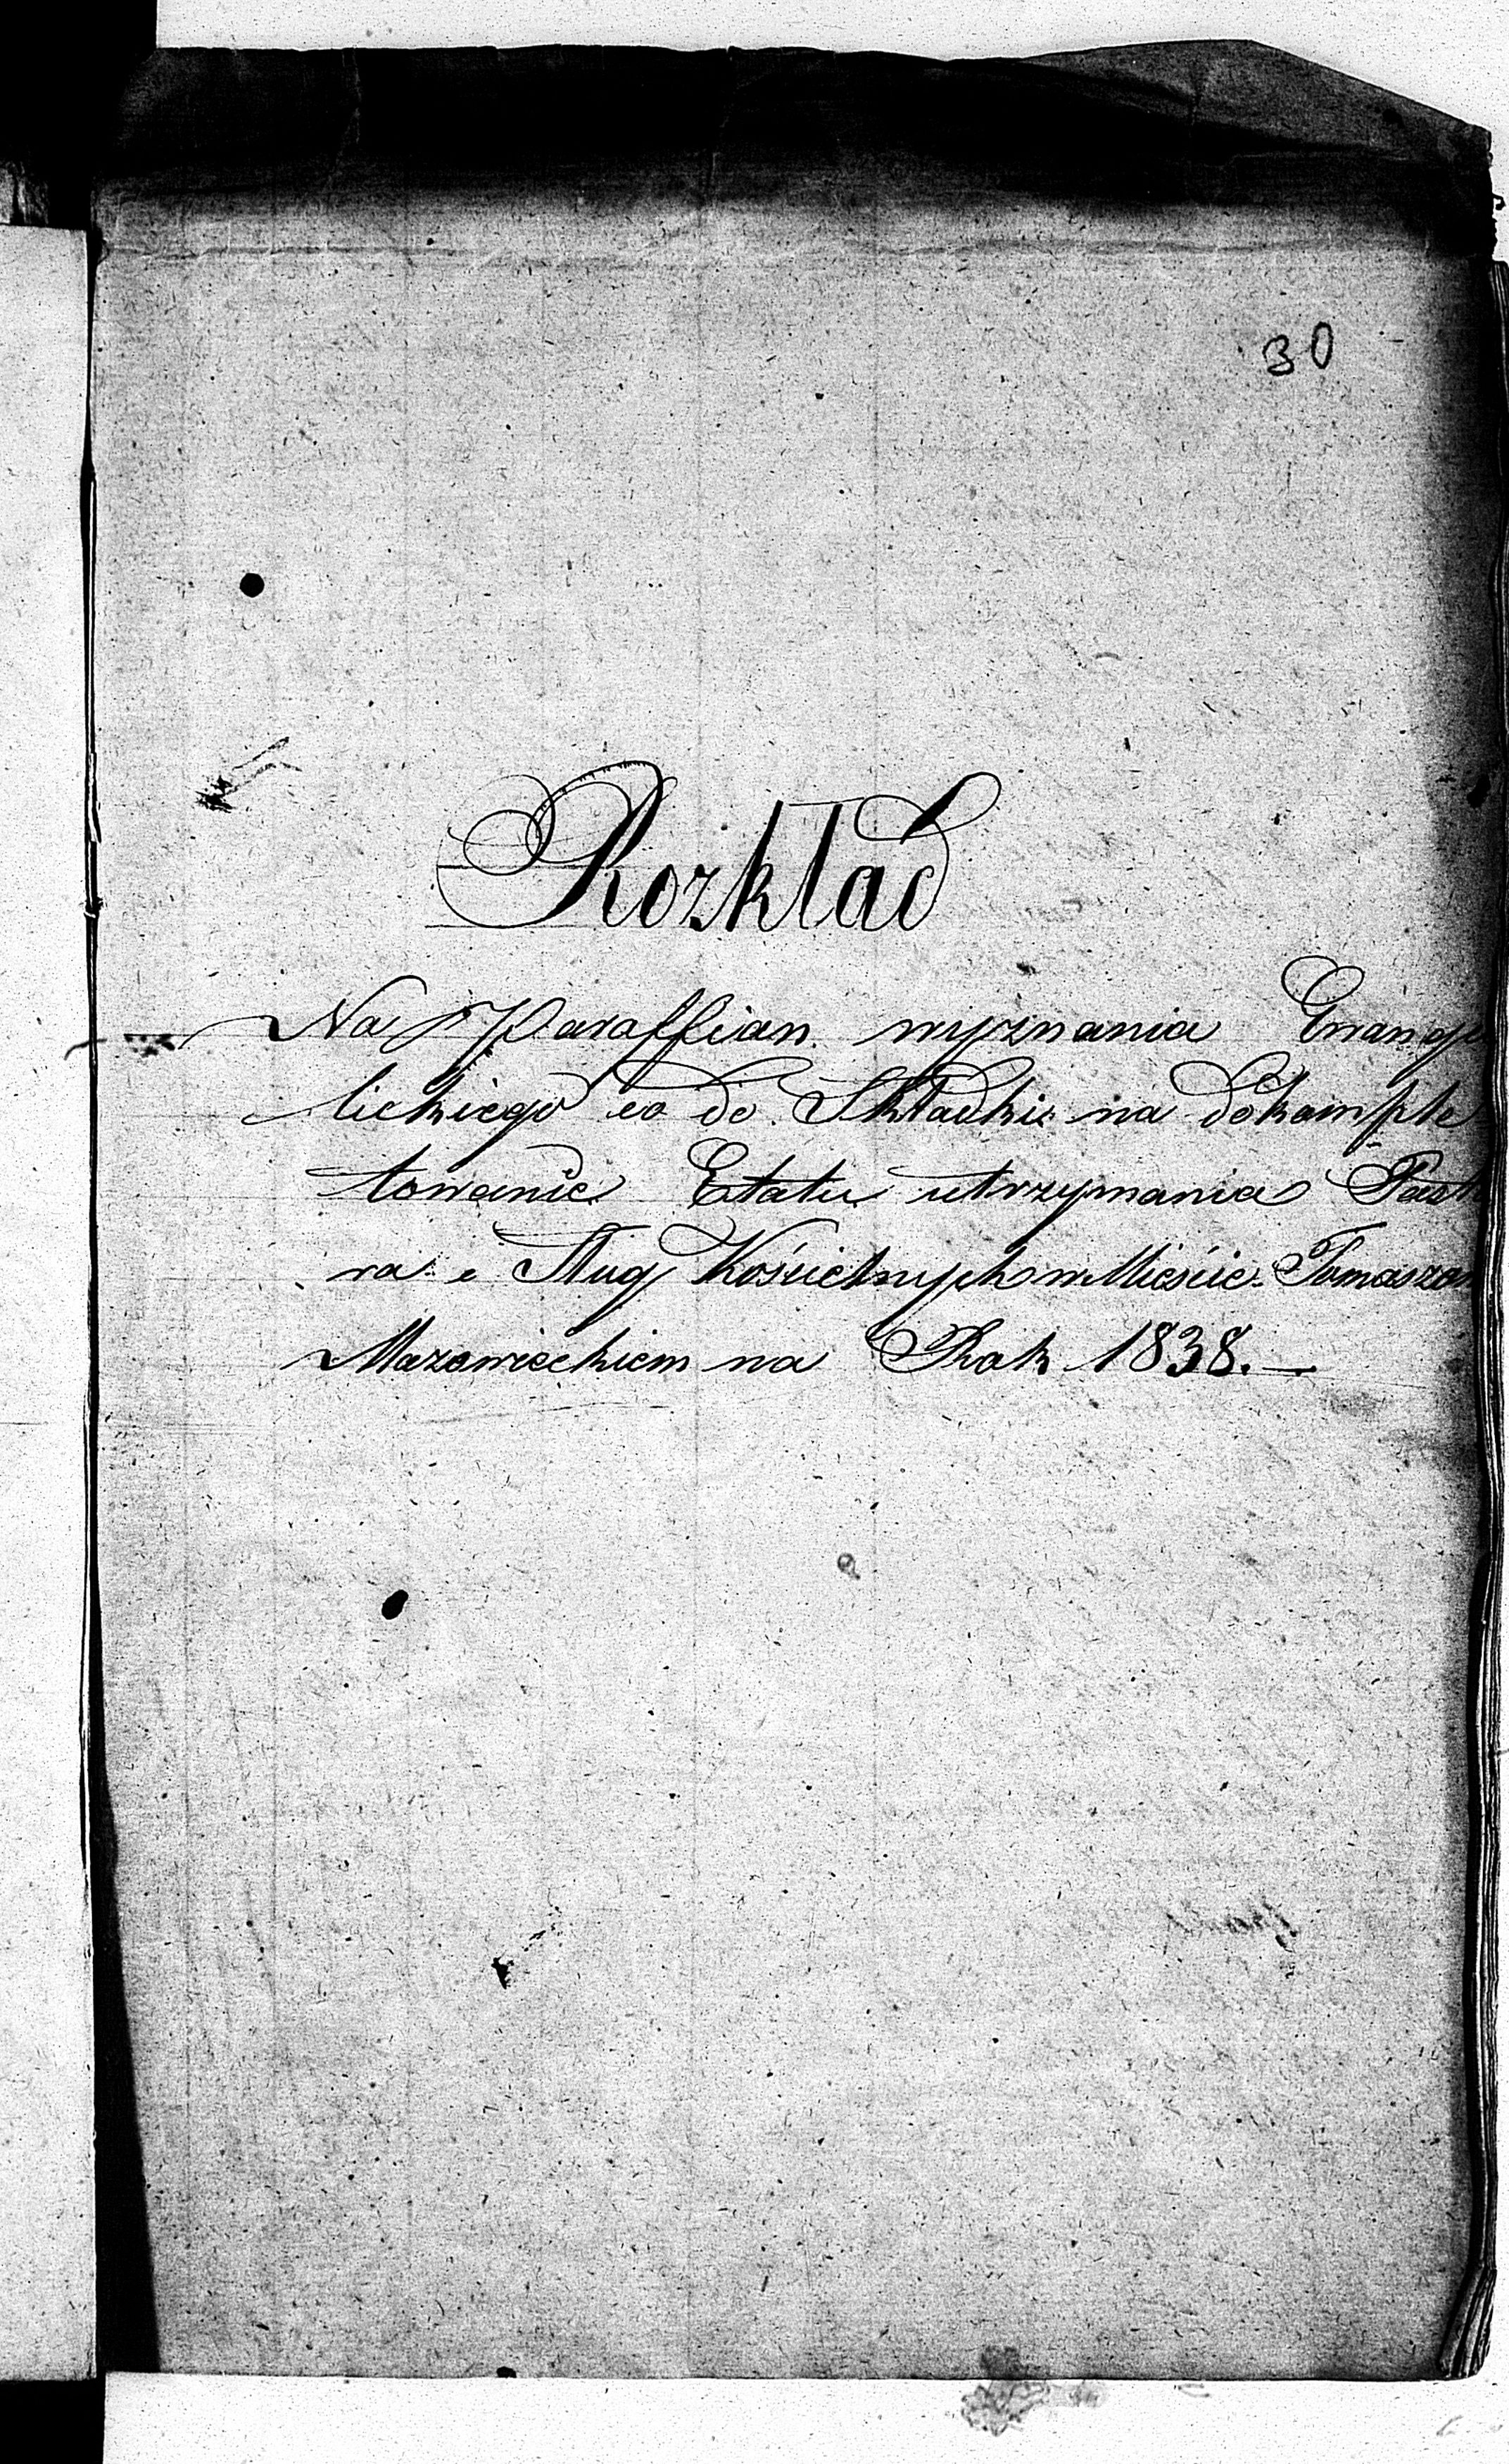 30
Rozkład
Na Paraffian wyznania Ewange
lickiego co do Składki na dokomple
towanie Etatu utrzymania Pasto
ra i Sług Kościelnych w Mieście Tomaszow
Mazowieckiem na Rok 1838. —